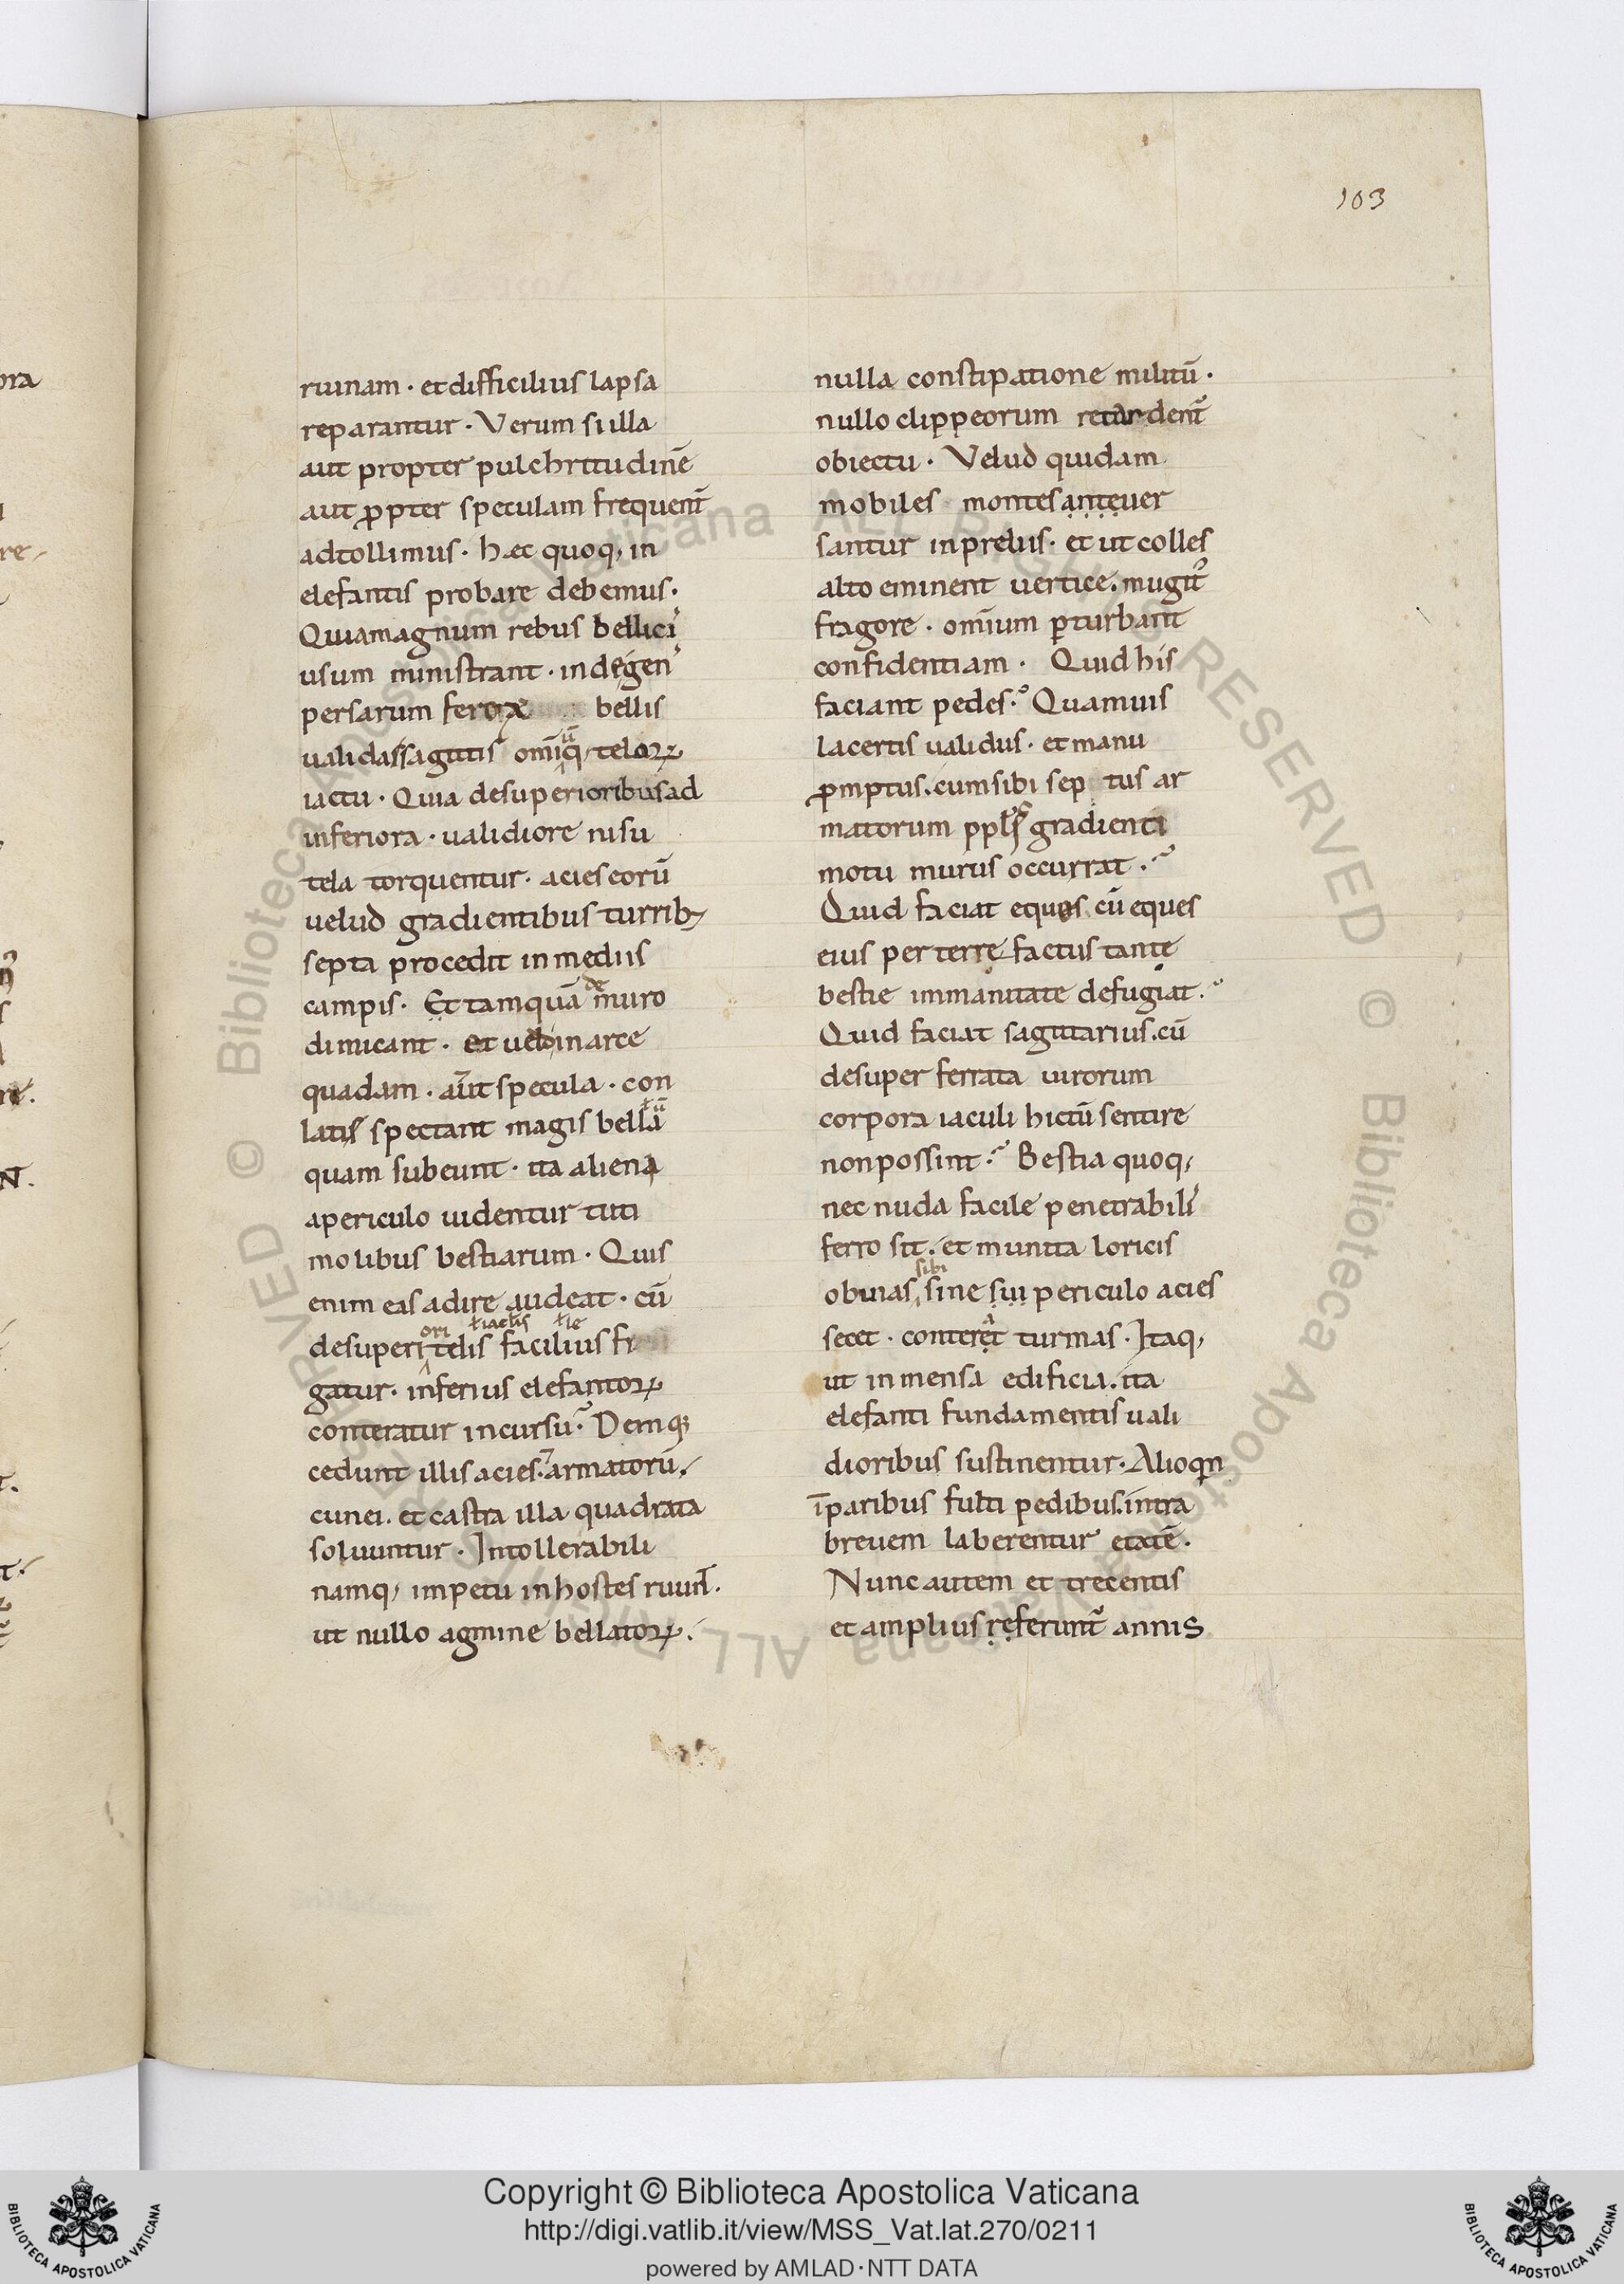 103
ruinam · et difficilius lapsa
reparantur · Verum si illa
aut propter pulchritudinē
aut ꝓpter speculam frequent̄
adtollimus · hæc quoq; in
elefantis probare debemus ·
Quia magnum rebus bellici
usum ministrant · indegen
persarum bellis
ualidas sagittis om̄iq; teloꝝ
iactu · Quia de superioribus ad
inferiora · ualidiore nisu
tela torquentur · acies eorū
uelud gradientibus turrib;
septa procedit in mediis
campis · Et tamquā de muro
dimicant · et uelđ in arce
quadam · aut specula · con
latis spectant magis bella ł ū
quam subeunt · ita aliena
a periculo uidentur tuti
molibus bestiarum · Quis
enim eas adire audeat · cū
ori ł iactis ł le
desuperi telis facilius
gatur · inferius elefantoꝝ
conteratur incursu? Deniq;
cedunt illis acies · armatorū
cunei · et castra illa quadrata
soluuntur · Intollerabili
namq; impetu in hostes ruunt̄ ·
ut nullo agmine bellatoꝝ ·
nulla constipatione militū ·
nullo clippeorum retardent̄
obiectu · Velud quidam
mobiles montes anteuer
santur in preliis · et ut colles
alto eminent uertice · mugit᷒
fragore · omīum ꝑturbant
confidentiam · Quid his
faciant pedes? Quamuis
lacertis ualidus · et manu
ꝓmptus · cum sibi septus ar
matorum gradienti
motu murus occurrat?
Quid faciat equos cū eques
eius perterrefactus tantę
bestie immanitate defugiat?
Quid faciat sagittarius · cū
desuper ferrata uirorum
corpora iaculi hictū sentire
non possint? Bestia quoq;
nec nuda facile penetrabili
ferro sit · et munita loricis
sibi
obuias sine sui periculo acies
secet · conteret turmas · Itaq;
ut inmensa edificia · ita
elefanti fundamentis uali
dioribus sustinentur · Alioqin
īparibus fulti pedibus · intra
breuem laberentur etatē ·
Nunc autem et trecentis
et amplius referunt̄ annis
Copyright © Biblioteca Apostolica Vaticana
http://digi.vatlib.it/view/MSS_Vat.lat.270/0211
powered by AMLAD·NTT DATA